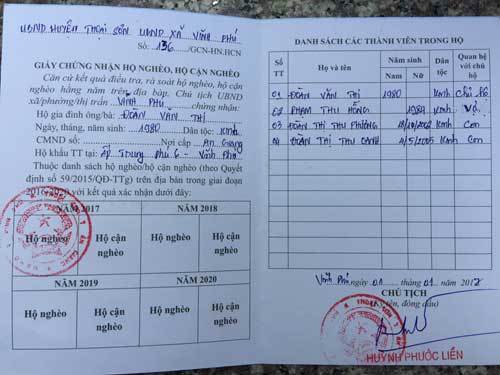 UBND HUYỆN THOẠI SƠN UBND XÃ VĨNH PHÚ
Số: 136 /GCN-HN.HCN
GIẤY CHỨNG NHẬN HỘ NGHÈO, HỘ CẬN NGHÈO
Căn cứ kết quả điều tra, rà soát hộ nghèo, hộ cận
nghèo hằng năm trên địa bàn. Chủ tịch UBND
xã/phường/thị trấn VĨNH PHÚ chứng nhận:
Hộ gia đình ông/bà: ĐOÀN VĂN THI
Ngày, tháng, năm sinh: 1980 Dân tộc: Kinh
CMND số: Nơi cấp: An Giang
Hộ khẩu TT tại: Ấp Trung Phú 6 - Vĩnh Phú
Thuộc danh sách hộ nghèo/hộ cận nghèo (theo Quyết
định số 59/2015/QĐ-TTg) trên địa bàn trong giai đoạn
2016-2020 với kết quả xác nhận dưới đây:
NĂM 2017 NĂM 2018
Hộ nghèo Hộ cận nghèo Hộ nghèo Hộ cận nghèo
NĂM 2019 NĂM 2020
Hộ nghèo Hộ cận nghèo Hộ nghèo Hộ cận nghèo
DANH SÁCH CÁC THÀNH VIÊN TRONG HỘ
Số TT Họ và tên Năm sinh Dân tộc Quan hệ với chủ hộ
Nam Nữ
01 ĐOÀN VĂN THI 1980 Kinh Chủ hộ
02 PHẠM THU HỒNG 1984 Kinh Vợ
03 ĐOÀN THỊ THU PHƯƠNG Kinh Con
04 ĐOÀN THỊ THU OANH /5/2005 Kinh Con
Vĩnh Phú ngày 01 tháng 01 năm 2018
CHỦ TỊCH
(Ký tên, đóng dấu)
HUỲNH PHƯỚC LIỀN